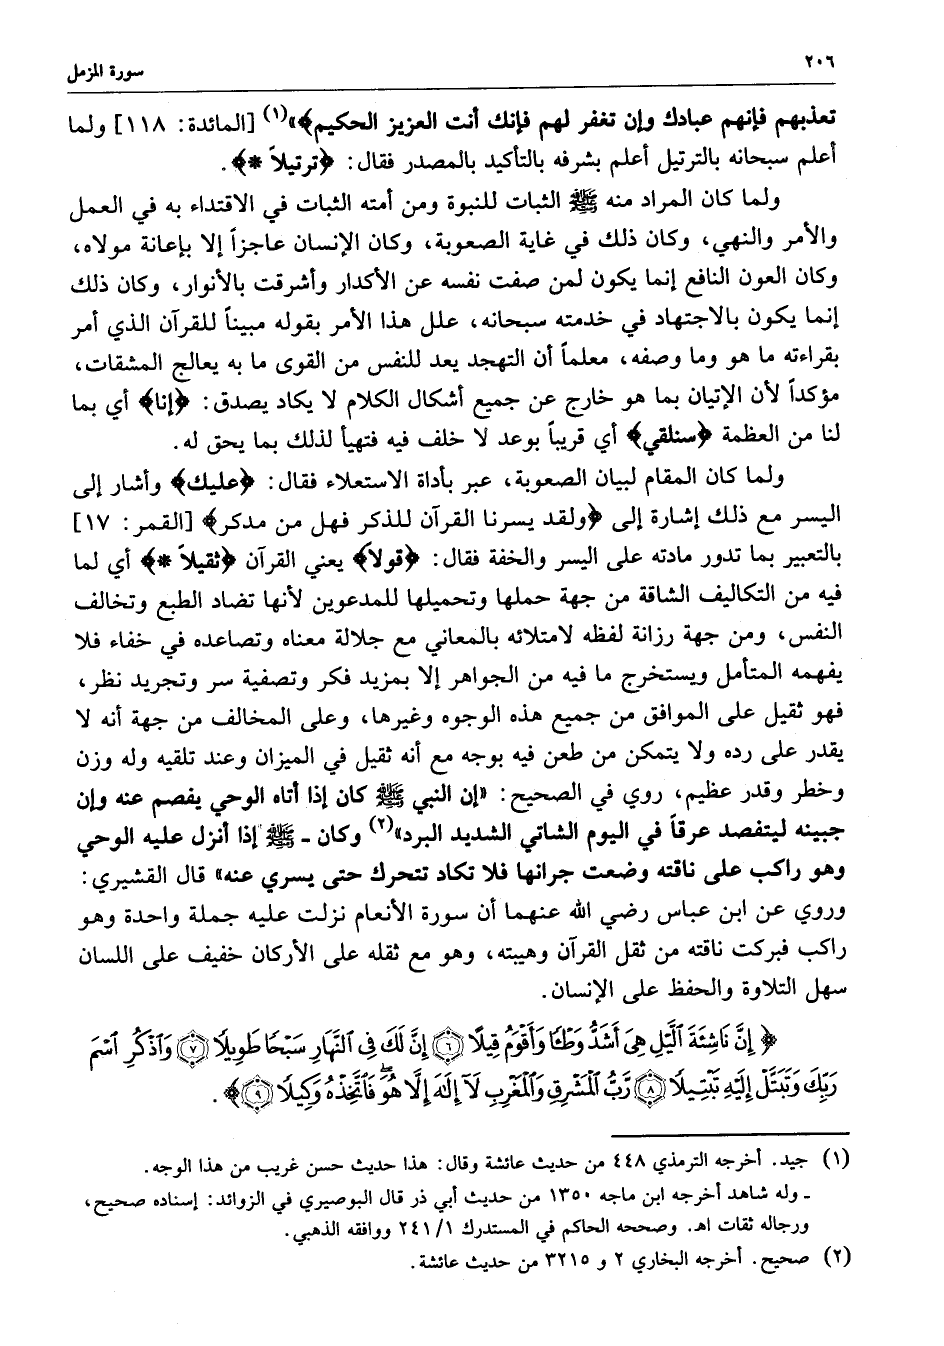 ٢٠٦
سورة المزمل
تعذبهم فإنهم عبادك وإن تغفر لهم فإنك أنت العزيز الحكيم﴾»(١) [المائدة: ١١٨] ولما
أعلم سبحانه بالترتيل أعلم بشرفه بالتأكيد بالمصدر فقال: ﴿ترتيلاً *﴾.
ولما كان المراد منه ﷺ الثبات للنبوة ومن أمته الثبات في الاقتداء به في العمل
والأمر والنهي، وكان ذلك في غاية الصعوبة، وكان الإنسان عاجزاً إلا بإعانة مولاه،
وكان العون النافع إنما يكون لمن صفت نفسه عن الأكدار وأشرقت بالأنوار، وكان ذلك
إنما يكون بالاجتهاد في خدمته سبحانه، علل هذا الأمر بقوله مبيناً للقرآن الذي أمر
بقراءته ما هو وما وصفه، معلماً أن التهجد يعد للنفس من القوى ما به يعالج المشقات،
مؤكداً لأن الإتيان بما هو خارج عن جميع أشكال الكلام لا يكاد يصدق: ﴿إنا﴾ أي بما
لنا من العظمة ﴿سنلقي﴾ أي قريباً بوعد لا خلف فيه فتهيأ لذلك بما يحق له.
ولما كان المقام لبيان الصعوبة، عبر بأداة الاستعلاء فقال: ﴿عليك﴾ وأشار إلى
اليسر مع ذلك إشارة إلى ﴿ولقد يسرنا القرآن للذكر فهل من مدكر﴾ [القمر: ١٧]
بالتعبير بما تدور مادته على اليسر والخفة فقال: ﴿قولاً﴾ يعني القرآن ﴿ثقيلاً *﴾ أي لما
فيه من التكاليف الشاقة من جهة حملها وتحميلها للمدعوين لأنها تضاد الطبع وتخالف
النفس، ومن جهة رزانة لفظه لامتلائه بالمعاني مع جلالة معناه وتصاعده في خفاء فلا
يفهمه المتأمل ويستخرج ما فيه من الجواهر إلا بمزيد فكر وتصفية سر وتجريد نظر،
فهو ثقيل على الموافق من جميع هذه الوجوه وغيرها، وعلى المخالف من جهة أنه لا
يقدر على رده ولا يتمكن من طعن فيه بوجه مع أنه ثقيل في الميزان وعند تلقيه وله وزن
وخطر وقدر عظيم، روي في الصحيح: «إن النبي ﷺ كان إذا أتاه الوحي يفصم عنه وإن
جبينه ليتفصد عرقاً في اليوم الشاتي الشديد البرد»(٢) وكان ـ ﷺ إذا أنزل عليه الوحي
وهو راكب على ناقته وضعت جرانها فلا تكاد تتحرك حتى يسري عنه» قال القشيري:
وروي عن ابن عباس رضي الله عنهما أن سورة الأنعام نزلت عليه جملة واحدة وهو
راكب فبركت ناقته من ثقل القرآن وهيبته، وهو مع ثقله على الأركان خفيف على اللسان
سهل التلاوة والحفظ على الإنسان.
﴿ إِنَّ نَاشِئَةَ ٱلَّيْلِ هِىَ أَشَدُّ وَطْـًٔا وَأَقْوَمُ قِيلًا ۝٦ إِنَّ لَكَ فِى ٱلنَّهَارِ سَبْحًا طَوِيلًا ۝٧ وَٱذْكُرِ ٱسْمَ
رَبِّكَ وَتَبَتَّلْ إِلَيْهِ تَبْتِيلًا ۝٨ رَّبُّ ٱلْمَشْرِقِ وَٱلْمَغْرِبِ لَآ إِلَـٰهَ إِلَّا هُوَ فَٱتَّخِذْهُ وَكِيلًا ۝٩﴾.
(١) جيد. أخرجه الترمذي ٤٤٨ من حديث عائشة وقال: هذا حديث حسن غريب من هذا الوجه.
ـ وله شاهد أخرجه ابن ماجه ١٣٥٠ من حديث أبي ذر قال البوصيري في الزوائد: إسناده صحيح،
ورجاله ثقات اهـ. وصححه الحاكم في المستدرك ١/ ٢٤١ ووافقه الذهبي.
(٢) صحيح. أخرجه البخاري ٢ و ٣٢١٥ من حديث عائشة.